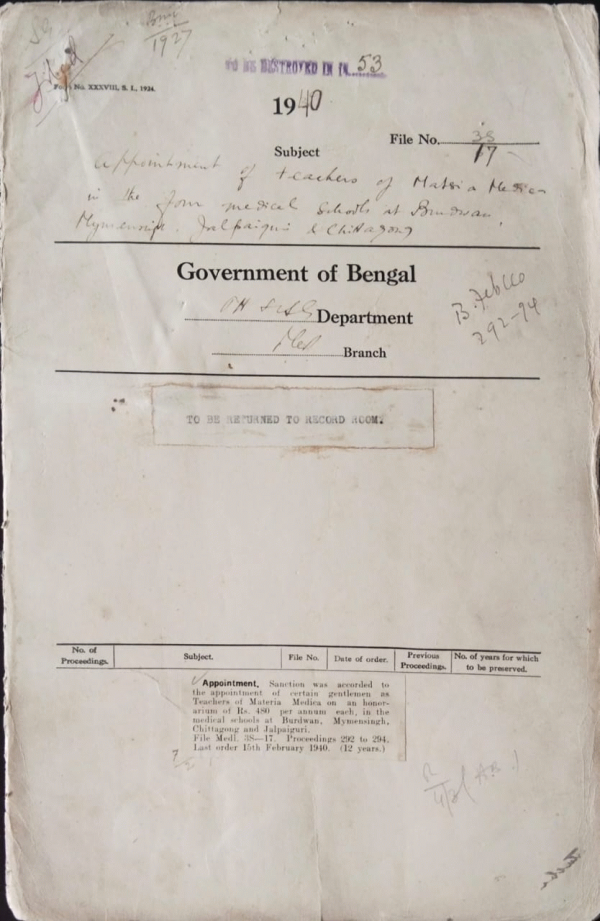 1927
TO BE DESTROYED IN IN 53
Form No. XXXVIII, S. I., 1924.
1940
File No. 38
17
Subject
Appointment of teachers of Materia Medica
in the four medical schools at Burdwan,
Mymensingh, Jalpaiguri & Chittagong
Government of Bengal
PH & LSG Department
Med Branch
B. Feb 40
292-94
TO BE RETURNED TO RECORD ROOM.
No. of Proceedings. Subject. File No. Date of order. Previous Proceedings. No. of years for which to be preserved.
Appointment. Sanction was accorded to
the appointment of certain gentlemen as
Teachers of Materia Medica on an honor-
arium of Rs. 480 per annum each, in the
medical schools at Burdwan, Mymensingh,
Chittagong and Jalpaiguri.
File Medl. 3S—17. Proceedings 292 to 294.
Last order 15th February 1940. (12 years.)